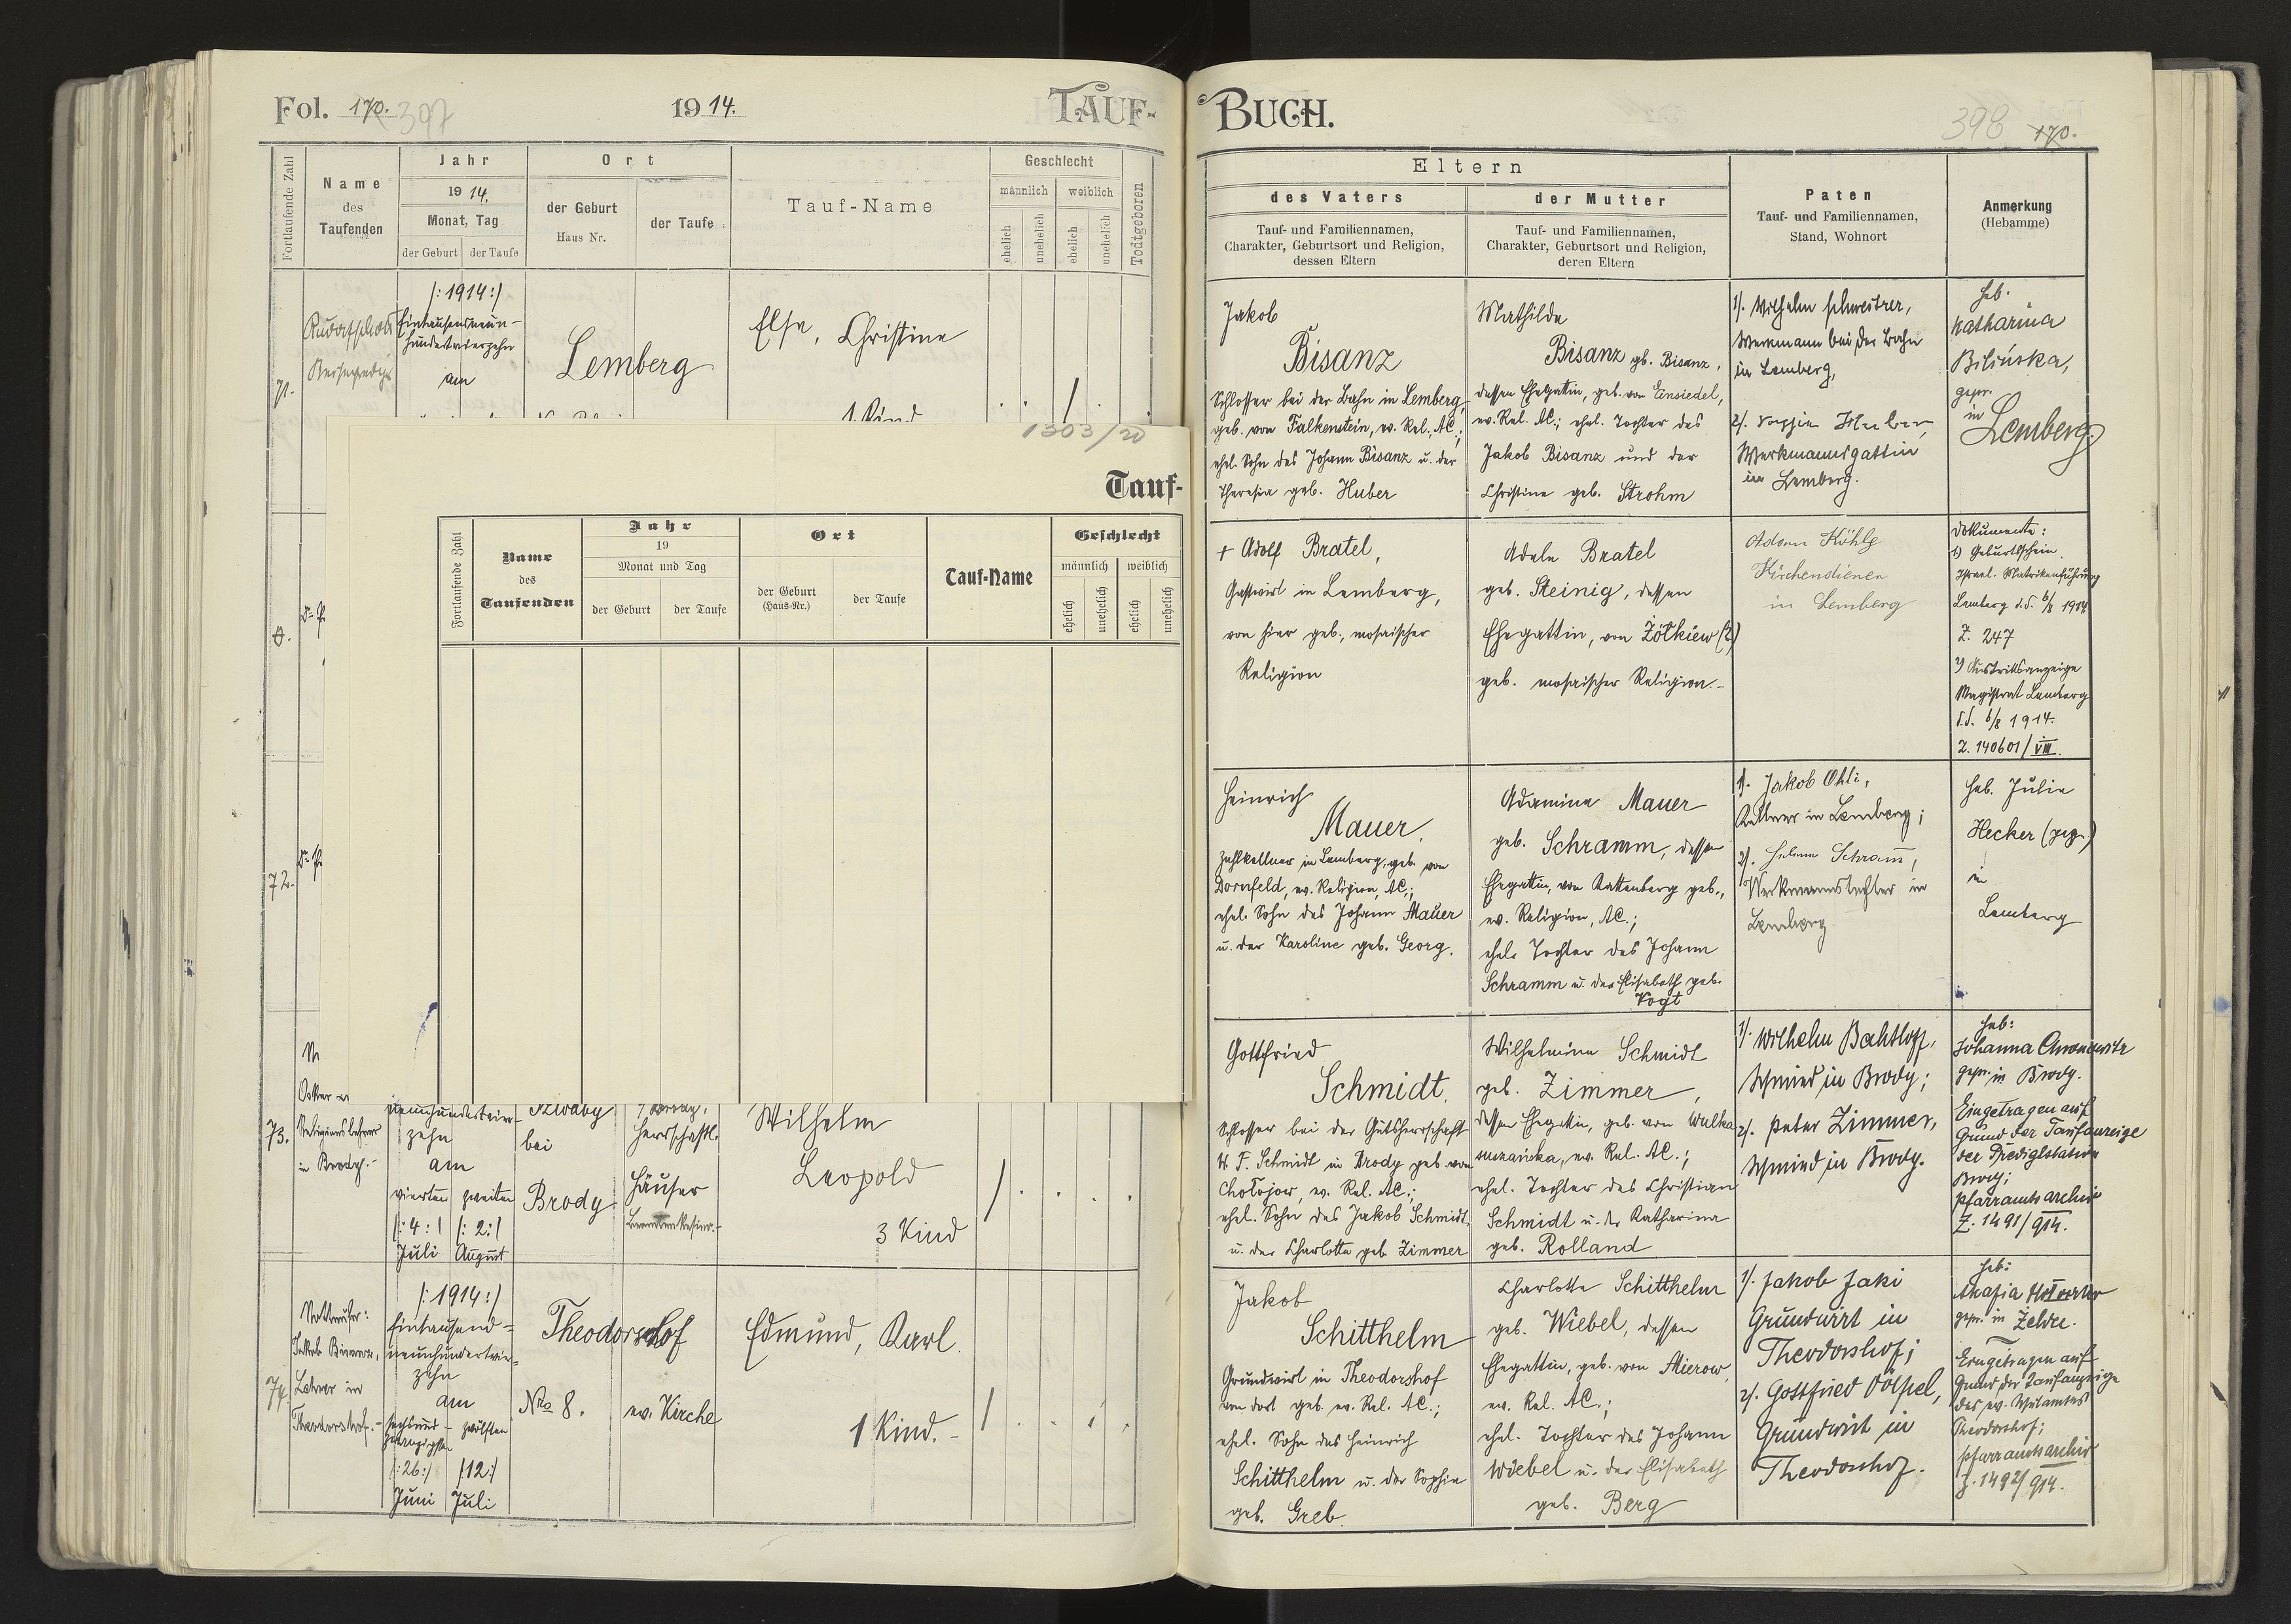 Fol. 170. 397
1914.
TAUF-
Fortlaufende Zahl
Name
des
Taufenden
Jahr
1914.
Monat, Tag
der Geburt
der Taufe
Ort
der Geburt
Haus Nr.
der Taufe
Tauf-Name
Geschlecht
männlich
weiblich
ehelich
unehelich
ehelich
unehelich
Todtgeboren
71.
/:1914:/
Eintausendneun-
hundertvierzehn
am
Lemberg
Else, Christine
1 Kind
1303/20
Tauf-
Fortlaufende Zahl
Name
des
Taufenden
Jahr
19
Monat und Tag
der Geburt
der Taufe
Ort
der Geburt
(Haus-Nr.)
der Taufe
Tauf-Name
Geschlecht
männlich
weiblich
ehelich
unehelich
ehelich
unehelich
0.
72.
73.
Religionslehrer
in Brody.-
neunhundertvier-
zehn
am
vierten
zweiten
/:4:/
/:2:/
Juli
August
bei
Brody
Herrschaftl.
Häuser
Wilhelm
Leopold
3 Kind
74.
Nottaufer:
Lehrer in
Theodorshof.-
/:1914:/
Eintausend-
neunhundertvier-
zehn
am
sechsund-
zwanzigsten
zwölften
/:26:/
/:12:/
Juni
Juli
Theodorshof
Nro 8.
ev. Kirche
Edmund, Karl.
1 Kind.-
BUCH.
398 170.
Eltern
des Vaters
Tauf- und Familiennamen,
Charakter, Geburtsort und Religion,
dessen Eltern
der Mutter
Tauf- und Familiennamen,
Charakter, Geburtsort und Religion,
deren Eltern
Paten
Tauf- und Familiennamen,
Stand, Wohnort
Anmerkung
(Hebamme)
Jakob
Bisanz
Schlosser bei der Bahn in Lemberg,
geb. von Falkenstein, ev. Rel., AC.;
ehel. Sohn des Johann Bisanz u. der
Theresia geb. Huber
Mathilde
Bisanz gb. Bisanz,
dessen Ehegattin, geb. von Einsiedel,
ev. Rel. AC.; ehel. Tochter des
Jakob Bisanz und der
Christine geb. Strohm
1/. Wilhelm Schweitzer,
Werkmann bei der Bahn
in Lemberg,
2/. Sophie Huber,
Werkmannsgattin
in Lemberg.
Heb.
Katharina
Bilińska,
gepr.
in
Lemberg.
+ Adolf Bratel,
Gastwirt in Lemberg,
von hier geb., mosaischer
Religion
Adele Bratel
geb. Steinig, dessen
Ehegattin, von Żółkiew (?)
geb. mosaischer Religion.-
Adam Kühle
Kirchendiener
in Lemberg
Dokumente:
1) Geburtsschein.
Israel. Matrikenführung
Lemberg d.d. 6/8 1914
Z. 247
2) Austrittsanzeige
Magistrat Lemberg
d.d. 6/8 1914.
Z. 140601/VIII.
Heinrich
Mauer,
Zahlkellner in Lemberg, geb. von
Dornfeld, ev. Religion, AC.;
ehel. Sohn des Johann Mauer
u. der Karoline geb. Georg.
Adamine Mauer
geb. Schramm, dessen
Ehegattin, von Rottenberg geb.,
ev. Religion, AC.;
ehel. Tochter des Johann
Schramm u. der Elisabeth geb.
Vogt
1/. Jakob Ohli,
Kellner in Lemberg;
2/. Helene Schramm,
Werkmannstochter in
Lemberg
Heb. Julie
Hecker (gepr.)
in
Lemberg
Gottfried
Schmidt,
Schlosser bei der Gutsherrschaft
H. F. Schmidt in Brody geb. von
Chołojow, ev. Rel. AC.;
ehel. Sohn des Jakob Schmidt
u. der Charlotte geb. Zimmer
Wilhelmine Schmidt
geb. Zimmer,
dessen Ehegattin, geb. von Wulka
suszańska, ev. Rel. AC.;
ehel. Tochter des Christian
Schmidt u. der Katharina
geb. Rolland
1/. Wilhelm Bachtloff,
Schmied in Brody;
2/. Peter Zimmer,
Schmied in Brody.
Heb:
Johanna
gepr. in Brody.
Eingetragen auf
Grund der Taufanzeige
der Predigtstation
Brody;
Pfarramtsarchiv
Z. 1491/914.
Jakob
Schitthelm
Grundwirt in Theodorshof
von dort geb. ev. Rel. AC.;
ehel. Sohn des Heinrich
Schitthelm u. der Sophie
geb. Greb.
Charlotte Schitthelm
geb. Wiebel, dessen
Ehegattin, geb. von Mierow,
ev. Rel. AC.;
ehel. Tochter des Johann
Wiebel u. der Elisabeth
geb. Berg
1/. Jakob Jaki
Grundwirt in
Theodorshof;
2/. Gottfried Völpel,
Grundwirt in
Theodorshof.
Heb:
gepr. in Żeldec.
Eingetragen auf
Grund der Taufanzeige
des ev. Schulamtes
Theodorshof;
Pfarramtsarchiv
Z. 1492/914.